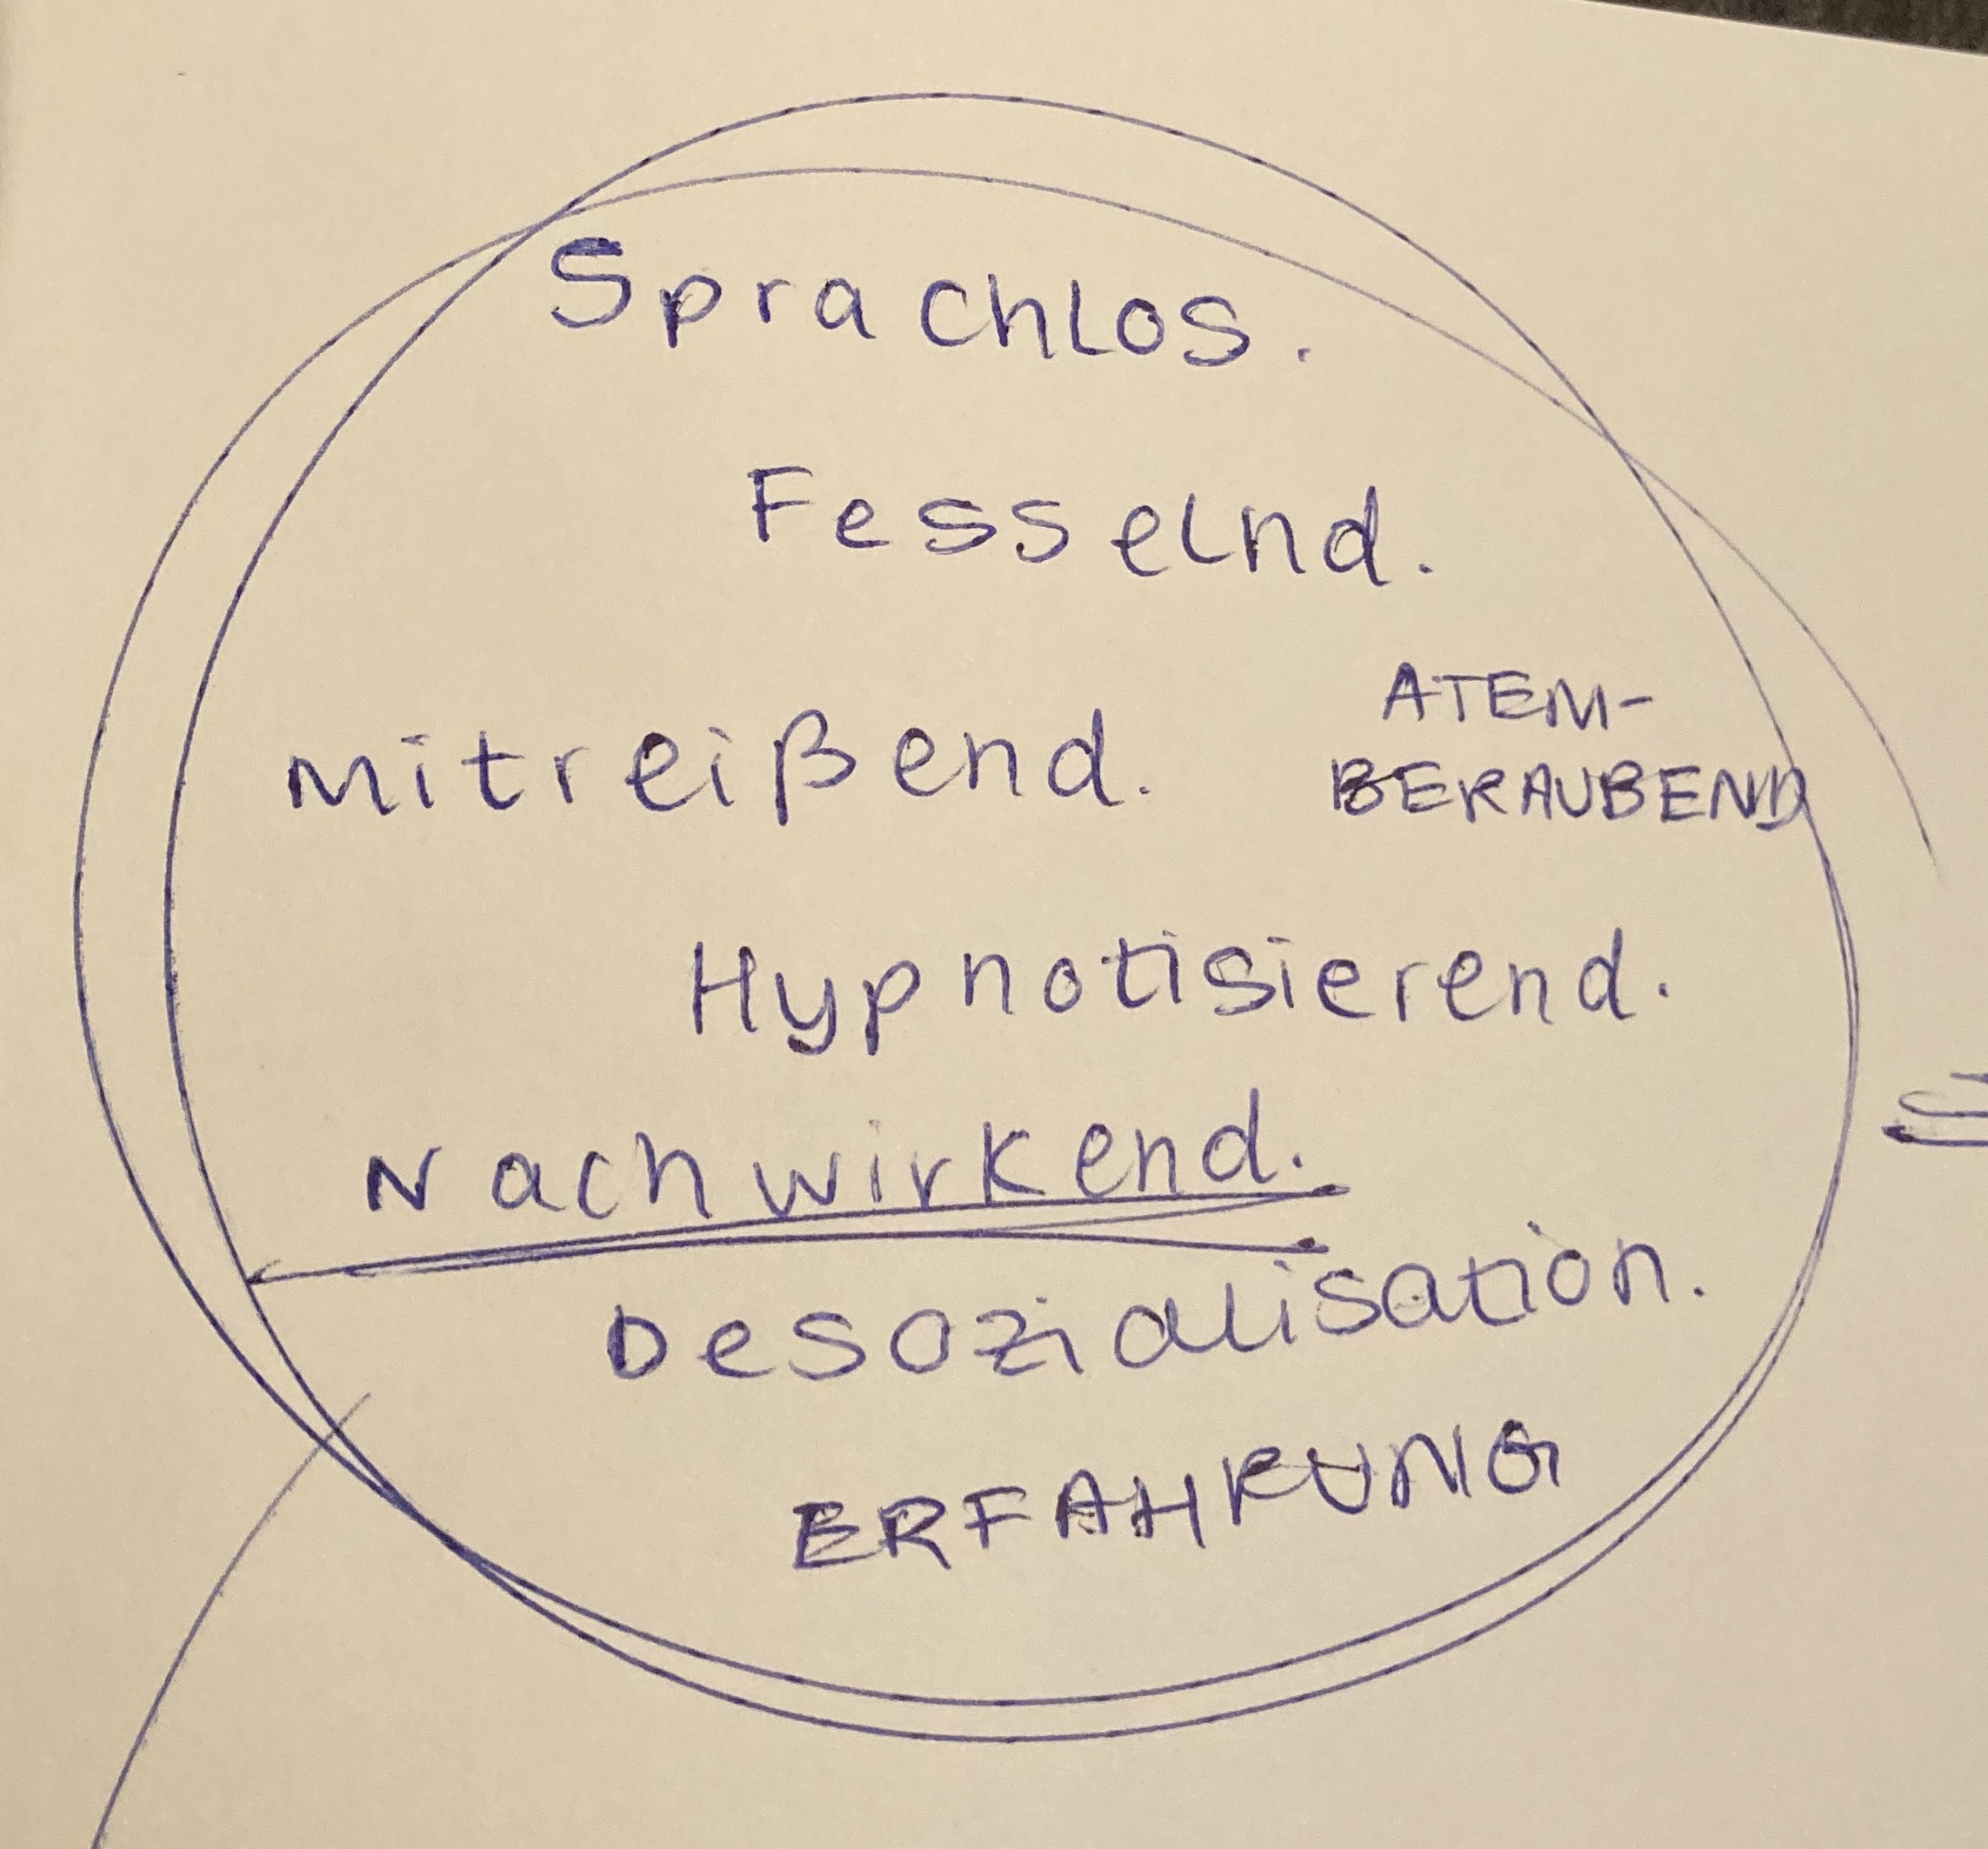 Sprachlos.
Fesselnd.
mitreißend.
ATEM-
BERAUBEND
Hypnotisierend.
Nachwirkend.
Desozialisation.
ERFAHRUNG